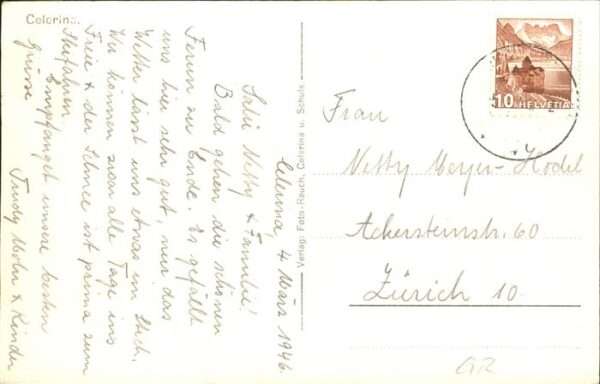 Celerina.
Celerina, 4 März 1946.
Salü Netty & Familie!
Bald gehen die schönen
Ferien zu Ende. Es gefällt
uns hier sehr gut, nur das
Wetter lässt uns etwas im Stich.
Wir können zwar alle Tage ins
Freie & der Schnee ist prima zum
Skifahren
Empfanget unsere besten
Grüsse
Trudy & Kinder
Verlag: Foto-Rauch, Celerina u. Schuls.
10 HELVETIA
Frau
Netty Meyer-Hodel
Ackersteinstr. 60
Zürich 10.
GR